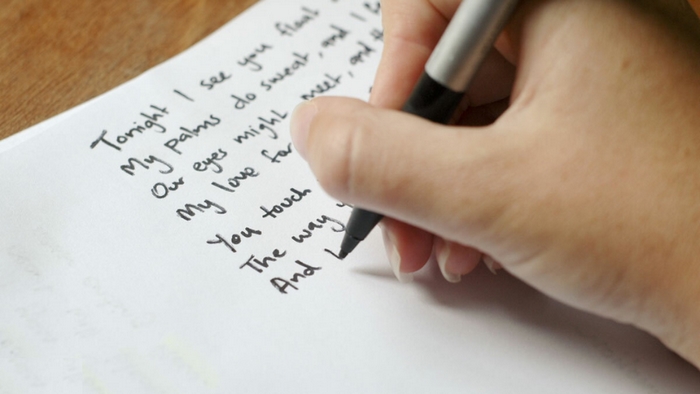 Tonight I see you float
My palms do sweat, and I
Our eyes might meet, and
My love for
You touch
The way
And